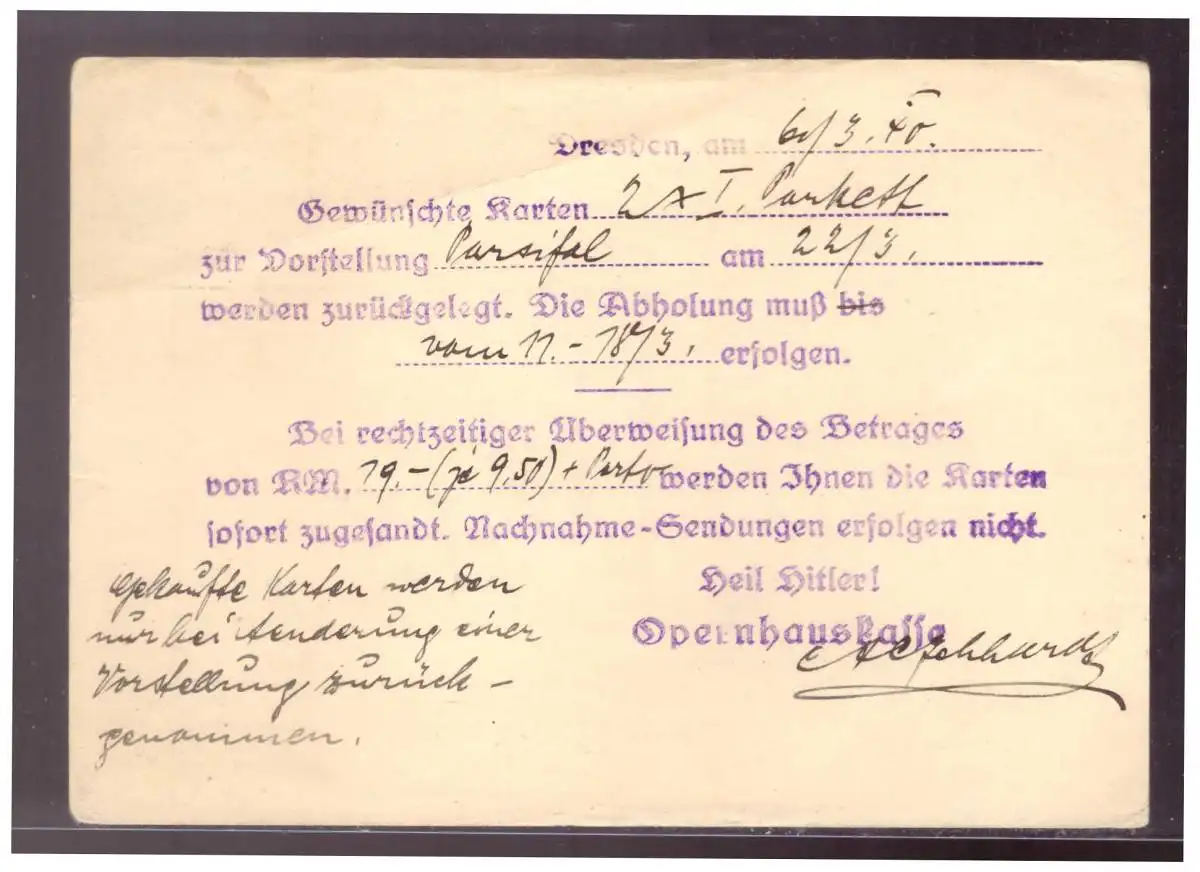 Dresden, am 6/3. 40.
Gewünschte Karten 2 x I. Parkett
zur Vorstellung Parsifal am 22/3.
werden zurückgelegt. Die Abholung muß bis
vom 11. - 18/3. erfolgen.
Bei rechtzeitiger Überweisung des Betrages
von RM. 19.- (je 9,50) + Porto werden Ihnen die Karten
sofort zugesandt. Nachnahme-Sendungen erfolgen nicht.
Heil Hitler!
Opernhauskasse
Gekaufte Karten werden
nur bei Aenderung einer
Vorstellung zurück-
genommen.